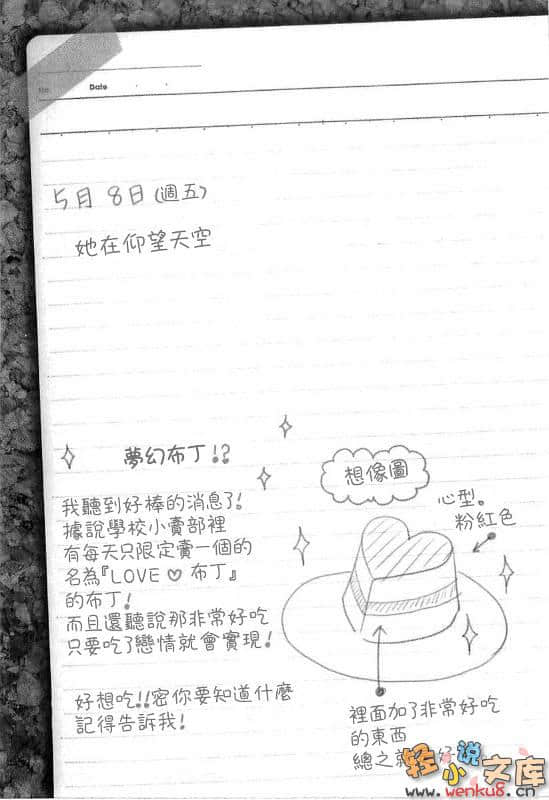 No.
Date
5月8日(週五)
她在仰望天空
夢幻布丁!?
我聽到好棒的消息了!
據說學校小賣部裡
有每天只限定賣一個的
名為『LOVE♡布丁』
的布丁!
而且還聽說那非常好吃
只要吃了戀情就會實現!
好想吃!!密你要知道什麼
記得告訴我!
想像圖
心型。
粉紅色
裡面加了非常好吃
的東西
總之就
好
轻小说文库
www.wenku8.cn